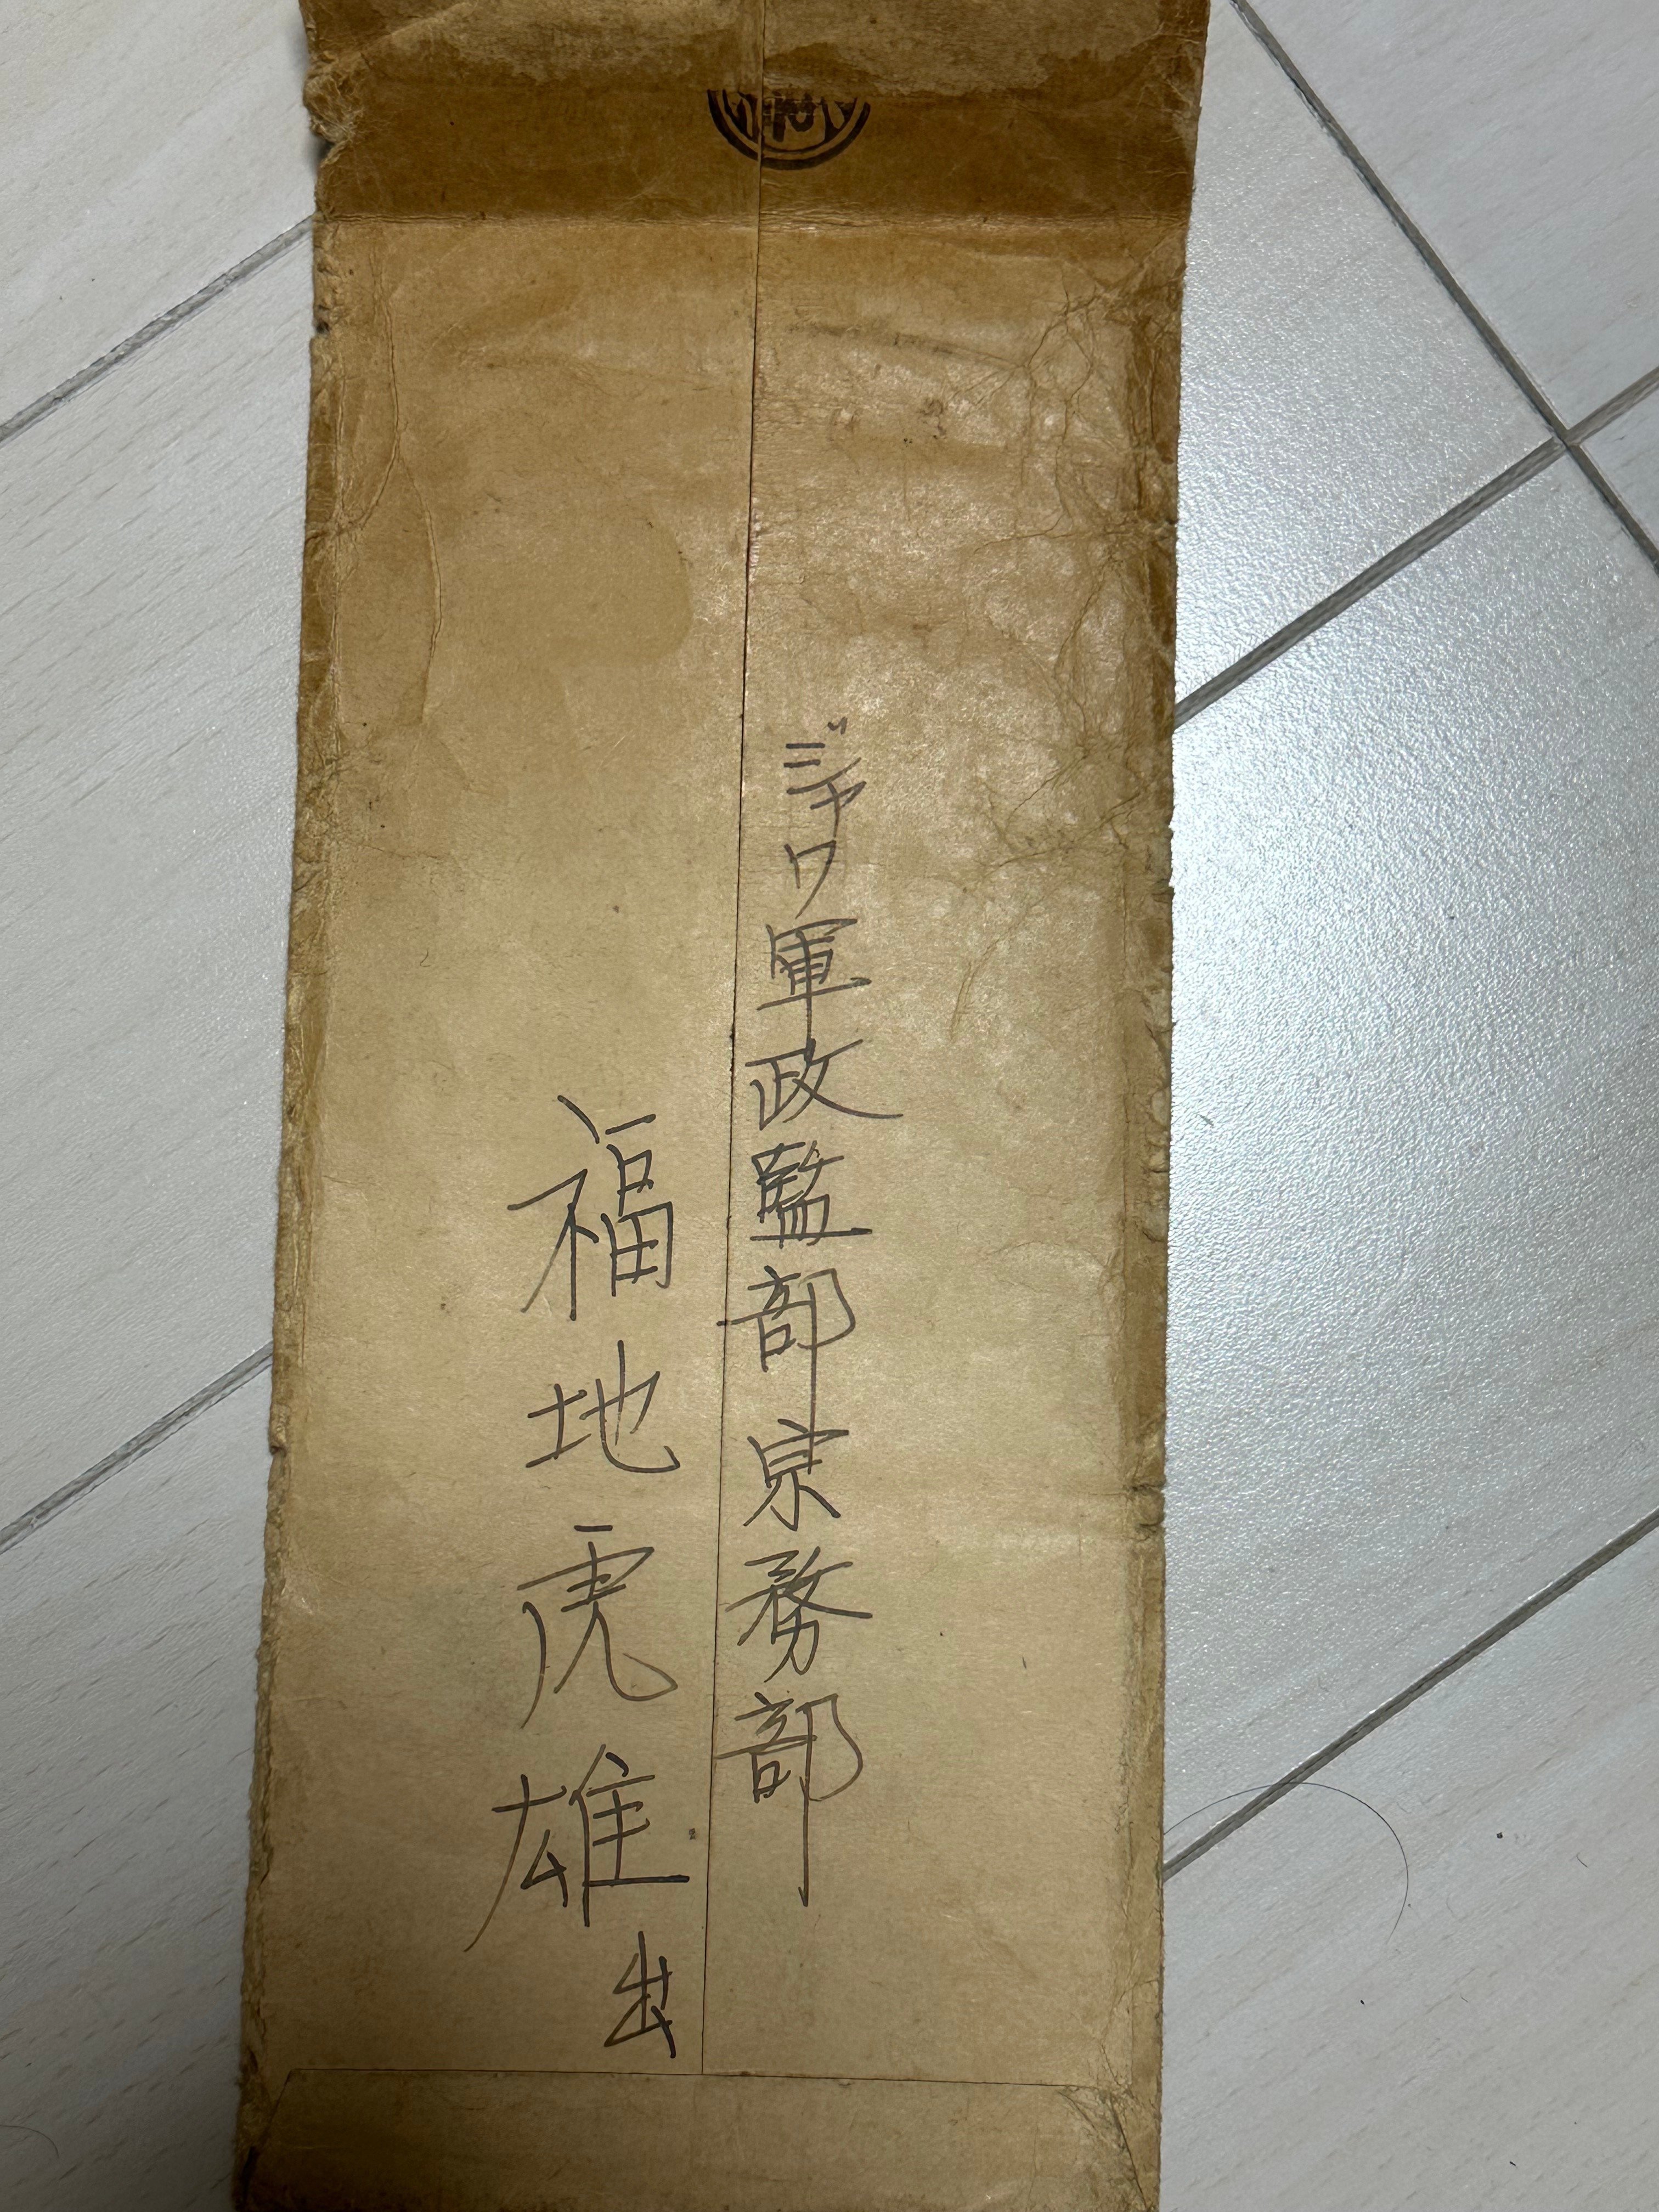 ジャワ軍政監部宗務部
福地虎雄出